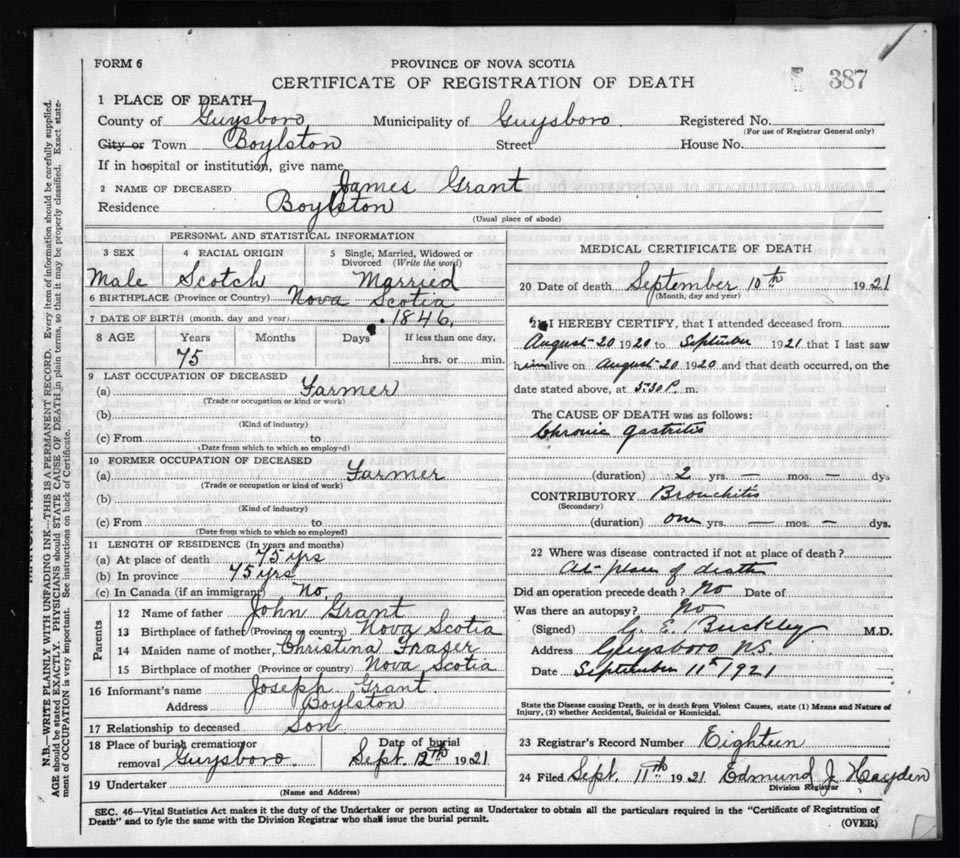 FORM 6
PROVINCE OF NOVA SCOTIA
CERTIFICATE OF REGISTRATION OF DEATH
387
1 PLACE OF DEATH
County of Guysboro Municipality of Guysboro Registered No.
(For use of Registrar General only)
City or Town Boylston Street House No.
If in hospital or institution, give name
2 NAME OF DECEASED James Grant
Residence Boylston
(Usual place of abode)
PERSONAL AND STATISTICAL INFORMATION
3 SEX 4 RACIAL ORIGIN 5 Single, Married, Widowed or Divorced (Write the word)
Male Scotch Married
6 BIRTHPLACE (Province or Country) Nova Scotia
7 DATE OF BIRTH (month, day and year) 1846
8 AGE Years Months Days If less than one day,
75 hrs. or min.
9 LAST OCCUPATION OF DECEASED
(a) Farmer
(Trade or occupation or kind of work)
(b)
(Kind of industry)
(c) From to
(Date from which to which so employed)
10 FORMER OCCUPATION OF DECEASED
(a) Farmer
(Trade or occupation or kind of work)
(b)
(Kind of industry)
(c) From to
(Date from which to which so employed)
11 LENGTH OF RESIDENCE (In years and months)
(a) At place of death 75 yrs
(b) In province 75 yrs
(c) In Canada (if an immigrant) No.
Parents
12 Name of father John Grant
13 Birthplace of father (Province or country) Nova Scotia
14 Maiden name of mother, Christina Fraser
15 Birthplace of mother (Province or country) Nova Scotia
16 Informant's name Joseph Grant.
Address Boylston
17 Relationship to deceased Son
18 Place of burial cremation or removal Guysboro. Date of burial Sept. 12th 1921
19 Undertaker
(Name and Address)
MEDICAL CERTIFICATE OF DEATH
20 Date of death September 10th 1921
(Month, day and year)
21 I HEREBY CERTIFY, that I attended deceased from
August 20 1920 to September 1921 that I last saw
him alive on August 20 1920 and that death occurred, on the
date stated above, at 5:30 P. m.
The CAUSE OF DEATH was as follows:
Chronic gastritis
(duration) 2 yrs. — mos. — dys
CONTRIBUTORY Bronchitis
(Secondary)
(duration) one yrs. — mos. — dys.
22 Where was disease contracted if not at place of death?
At place of death
Did an operation precede death? No Date of
Was there an autopsy? No
(Signed) G. E. Buckley M.D.
Address Guysboro N.S.
Date September 11th 1921
State the Disease causing Death, or in death from Violent Causes, state (1) Means and Nature of
Injury, (2) whether Accidental, Suicidal or Homicidal.
23 Registrar's Record Number Eighteen
24 Filed Sept. 11th 1921 Edmund J. Hayden
Division Registrar
SEC. 46—Vital Statistics Act makes it the duty of the Undertaker or person acting as Undertaker to obtain all the particulars required in the "Certificate of Registration of
Death" and to fyle the same with the Division Registrar who shall issue the burial permit.
(OVER)
N.B.—WRITE PLAINLY WITH UNFADING INK—THIS IS A PERMANENT RECORD. Every item of information should be carefully supplied.
AGE should be stated EXACTLY. PHYSICIANS should STATE CAUSE OF DEATH in plain terms, so that it may be properly classified. Exact state-
ment of OCCUPATION is very important. See instructions on back of Certificate.